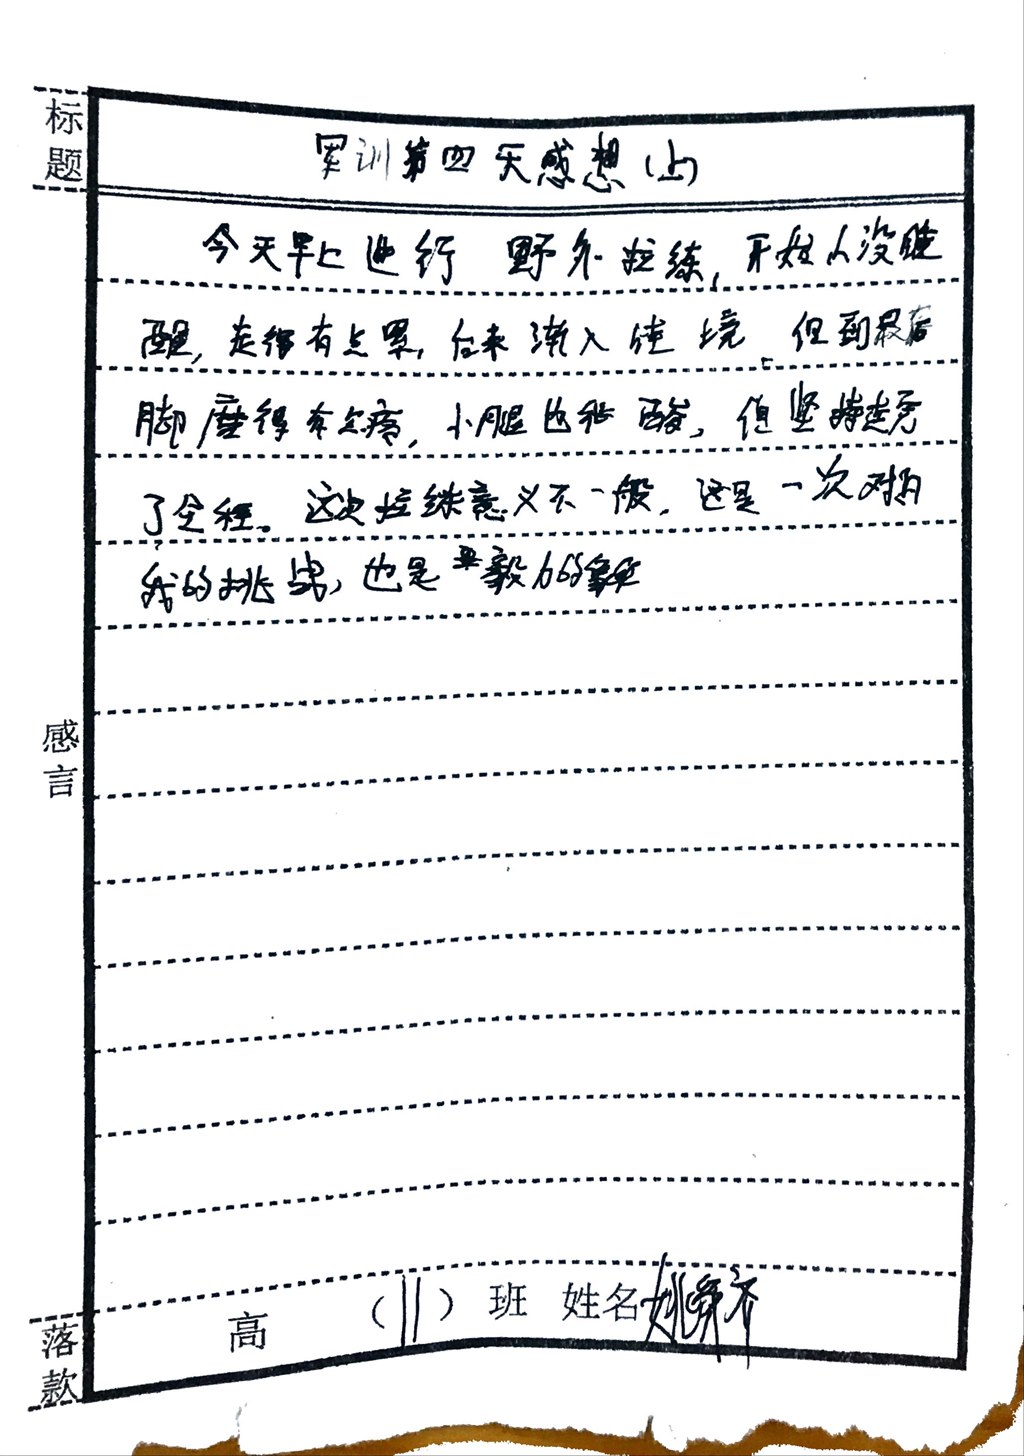 标题
军训第四天感想(上)
今天早上进行野外拉练,开始人没睡
醒,走得有点累,后来渐入佳境,但到最后
脚磨得有点疼,小腿也很酸,但坚持走完
了全程。这次拉练意义不一般,这是一次对自
我的挑战,也是毅力的象征
感言
落款
高 (11)班 姓名姚舜齐